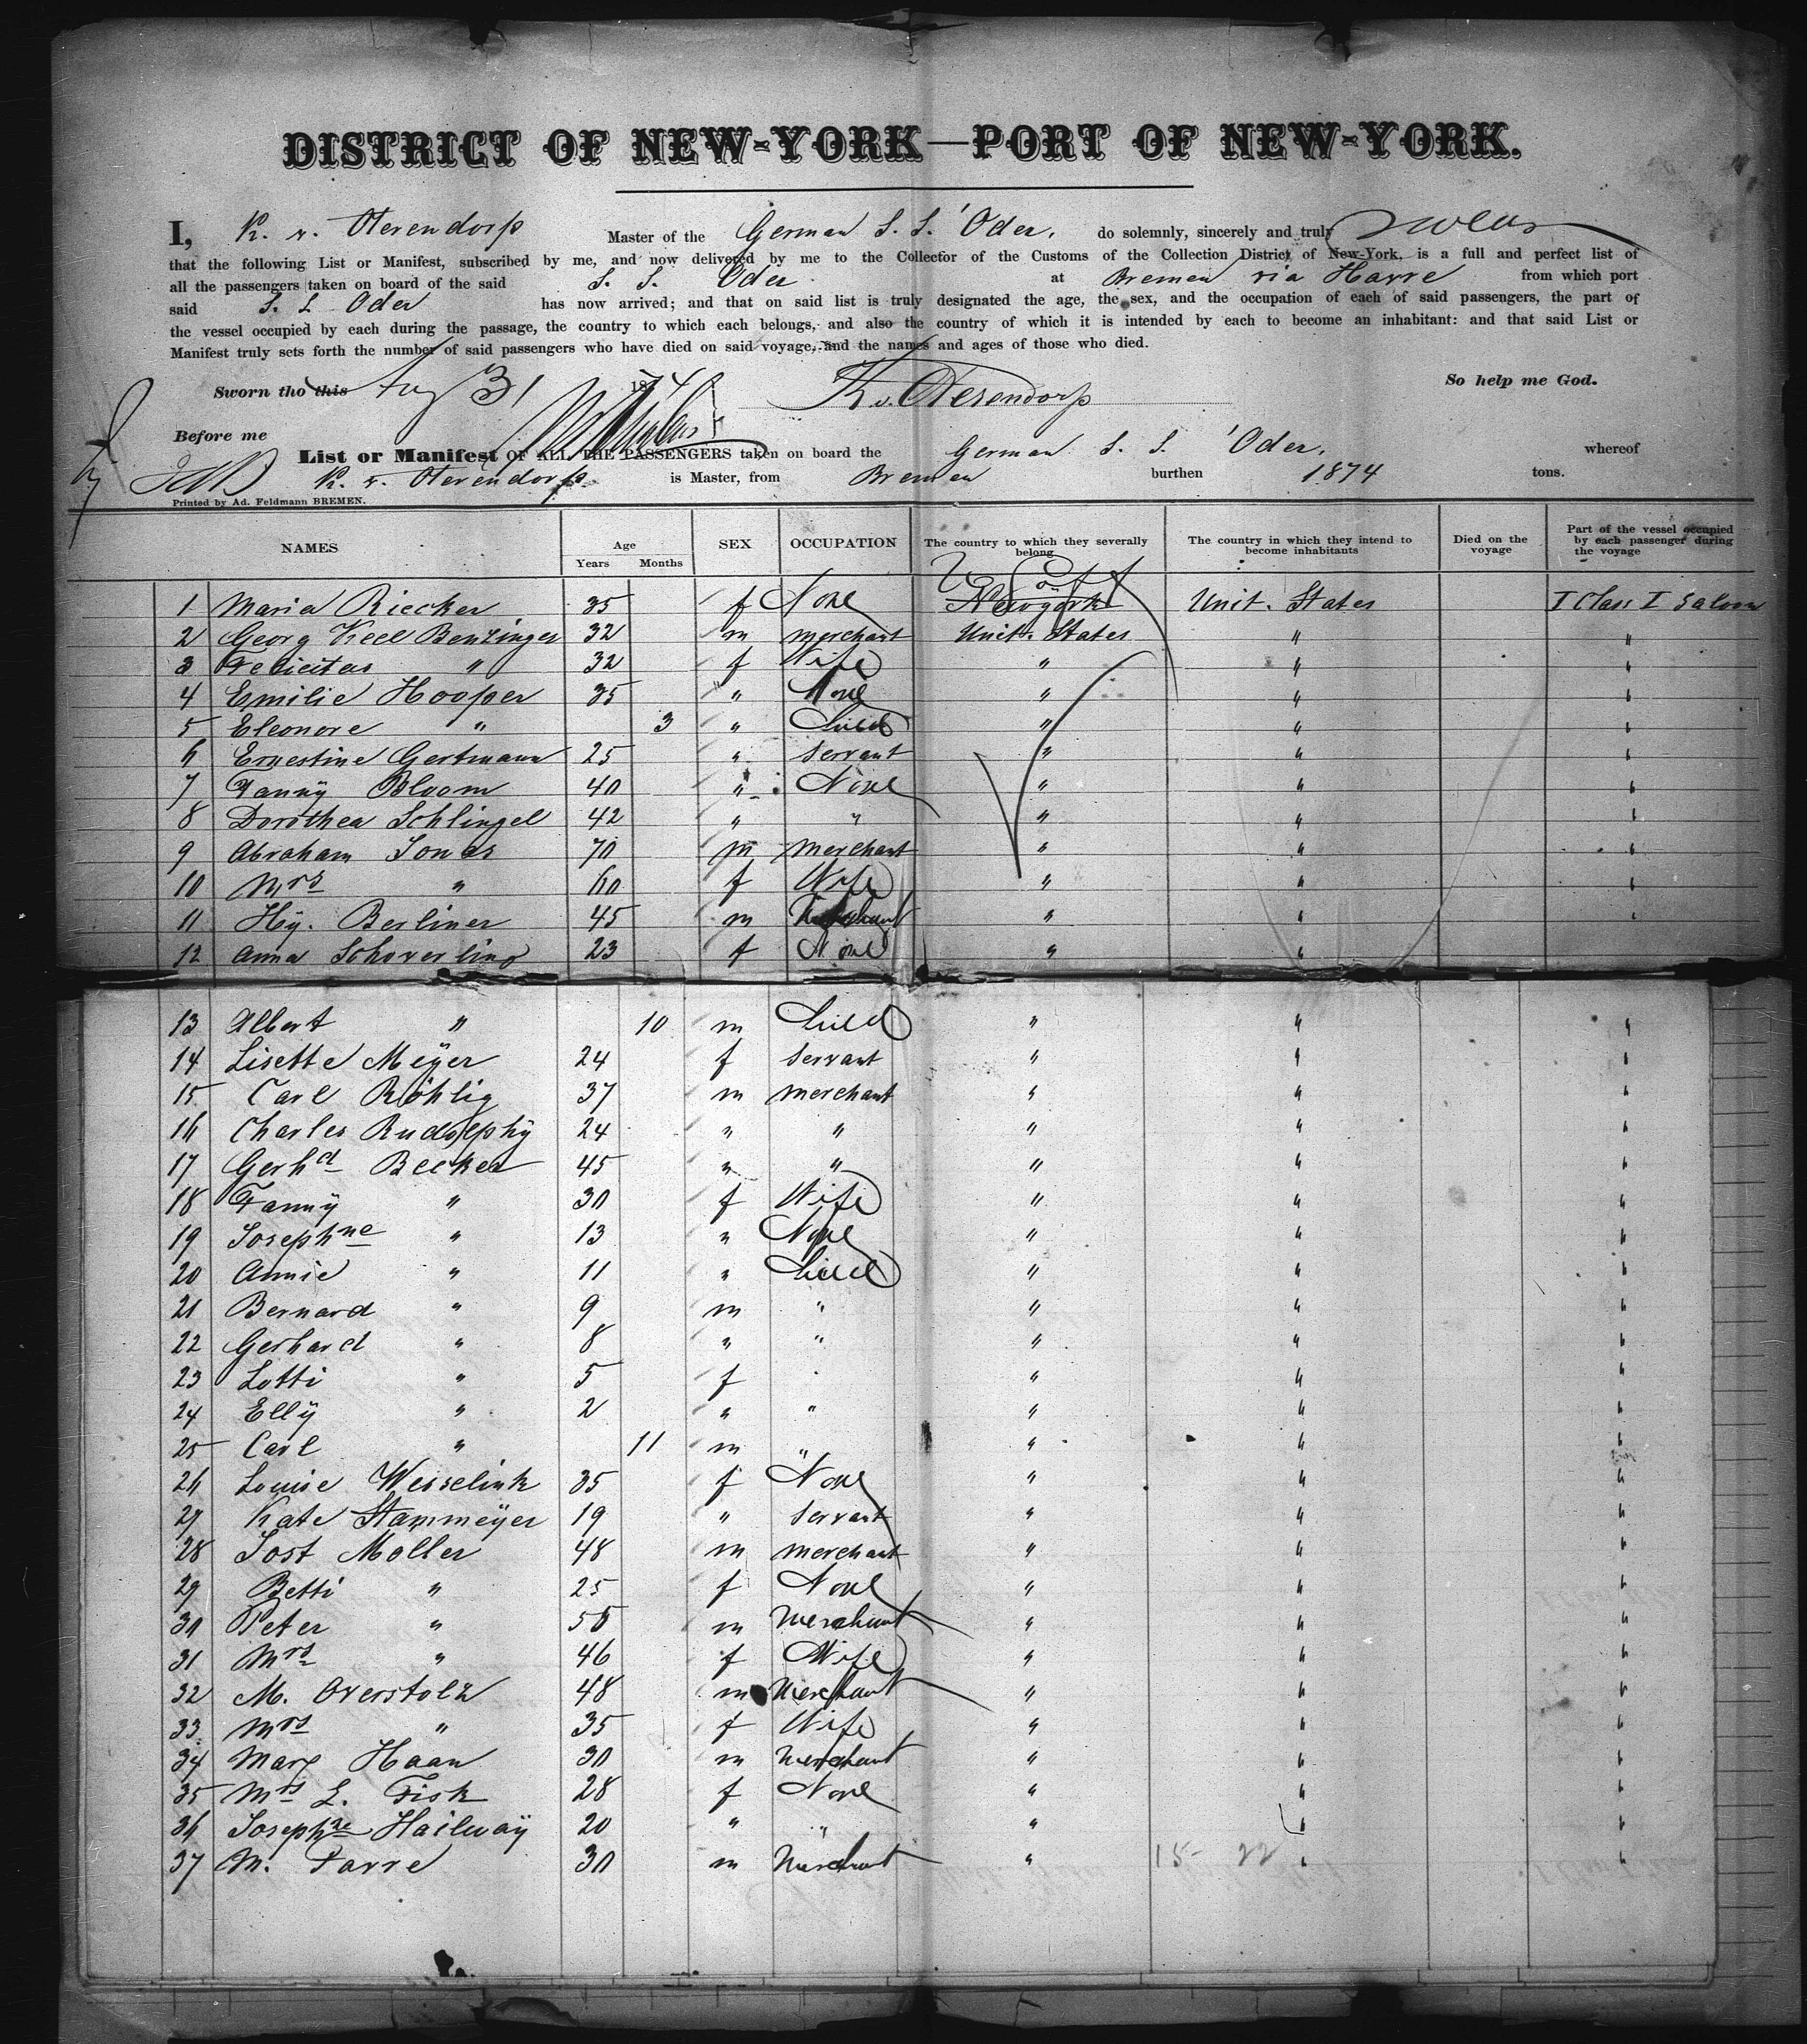 DISTRICT OF NEW-YORK—PORT OF NEW-YORK.
I, K. v. Oterendorp Master of the German S. S. 'Oder, do solemnly, sincerely and truly swear
that the following List or Manifest, subscribed by me, and now delivered by me to the Collector of the Customs of the Collection District of New-York, is a full and perfect list of
all the passengers taken on board of the said S. S. Oder at Bremen via Havre from which port
said S. S. Oder has now arrived; and that on said list is truly designated the age, the sex, and the occupation of each of said passengers, the part of
the vessel occupied by each during the passage, the country to which each belongs, and also the country of which it is intended by each to become an inhabitant: and that said List or
Manifest truly sets forth the number of said passengers who have died on said voyage, and the names and ages of those who died.
Sworn tho this Aug 31 1874 K. v. Oterendorp So help me God.
Before me
List or Manifest OF ALL THE PASSENGERS taken on board the German S. S. 'Oder, whereof
K. v. Oterendorp is Master, from Bremen burthen 1874 tons.
Printed by Ad. Feldmann BREMEN.
NAMES Age Years Months SEX OCCUPATION The country to which they severally belong The country in which they intend to become inhabitants Died on the voyage Part of the vessel occupied by each passenger during the voyage
1 Maria Riecker 35 f None Newyork Unit. States I Class I Saloon
2 Georg Keel Benzinger 32 m merchant Unit. States " "
3 Felicitas " 32 f Wife " " "
4 Emilie Hooper 35 " None " " "
5 Eleonore " 3 " Child " " "
6 Ernestine Gertmann 25 " Servant " " "
7 Fanny Bloom 40 " None " " "
8 Dorothea Schlingel 42 " " " " "
9 Abraham Jonas 70 m merchant " " "
10 Mrs " 60 f Wife " " "
11 Hy. Berliner 45 m Merchant " " "
12 Anna Schoverling 23 f None " "
13 Albert " 10 m Child " " "
14 Lisette Meyer 24 f Servant " " "
15 Carl Röhlig 37 m merchant " " "
16 Charles Rudolphy 24 " " " " "
17 Gerhd Becker 45 " " " " "
18 Fanny " 30 f Wife " " "
19 Josephne " 13 " None " " "
20 Annie " 11 " Child " " "
21 Bernard " 9 m " " " "
22 Gerhard " 8 " " " " "
23 Lotti " 5 f " " " "
24 Elly " 2 " " " " "
25 Carl " 11 m " " " "
26 Louise Wesselink 35 f None " " "
27 Kate Stammeyer 19 " Servant " " "
28 Jost Moller 48 m merchant " " "
29 Betti " 25 f None " " "
30 Peter " 55 m Merchant " " "
31 Mrs " 46 f Wife " " "
32 M. Overstolz 48 m Merchant " " "
33 Mrs " 35 f Wife " " "
34 Marx Haan 30 m Merchant " " "
35 Mrs L. Fisk 28 f None " " "
36 Josephne Hailway 20 " " " " "
37 M. Farre 30 m Merchant " 15- 22 " "